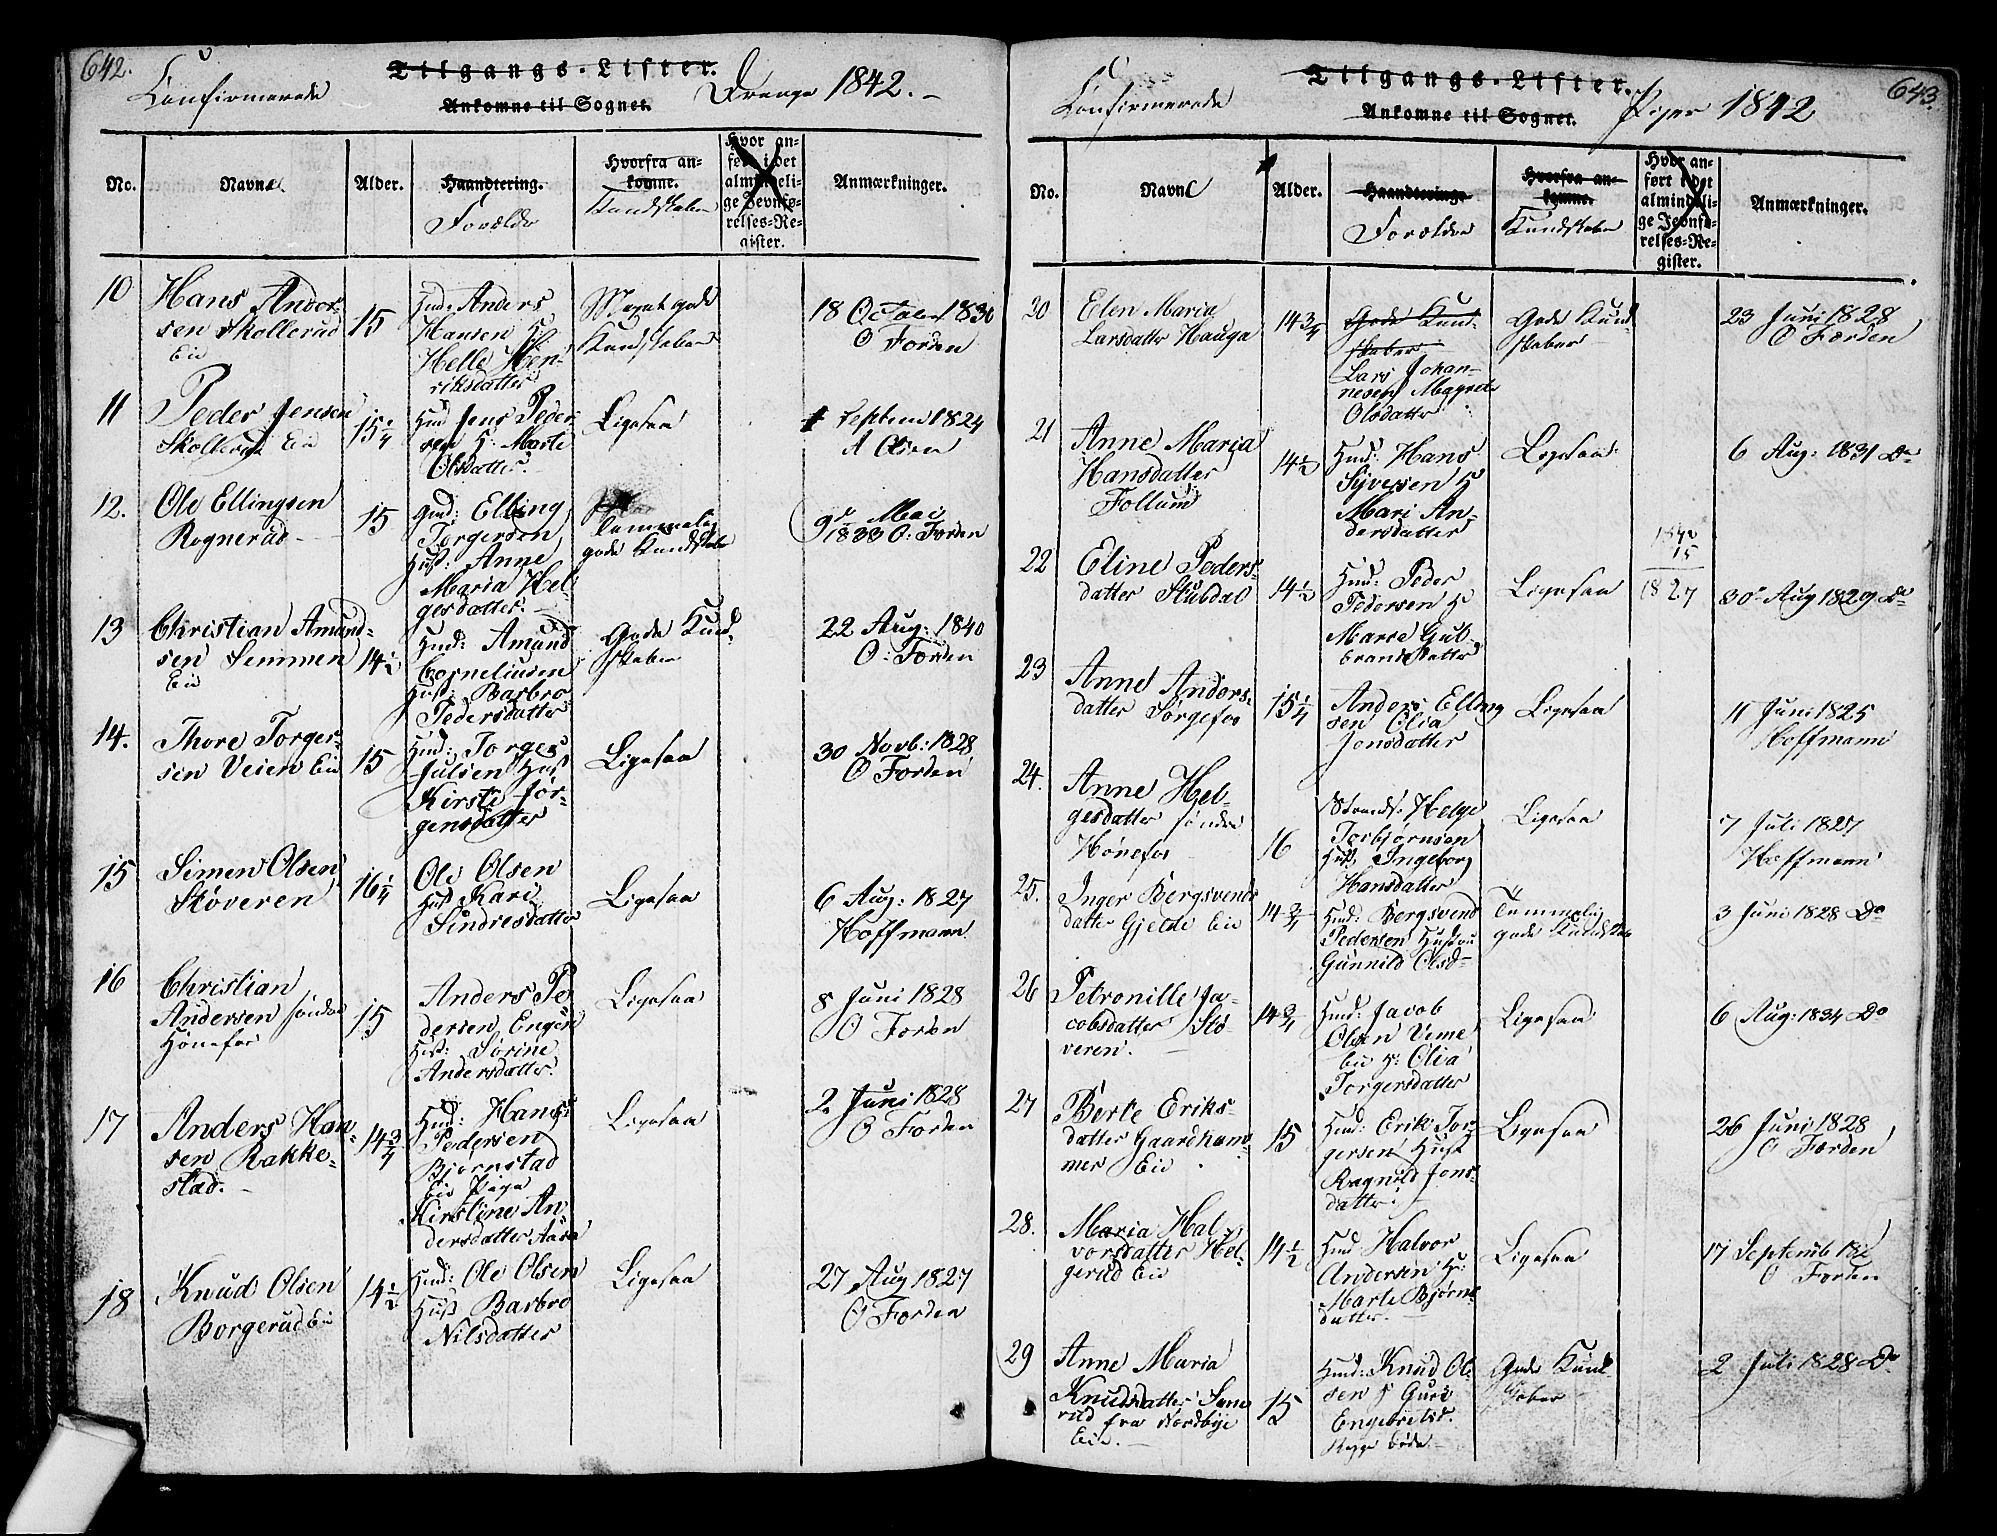 642.
Confirmerede
Tilgangs-Lister.
Drenge 1842.
Ankomne til Sognet.
No.
Navne
Alder.
Haandtering.
Forældre
Hvorfra an=
komne.
Kundskaber
Hvor an=
ført i det
almindeli=
ge Jevnfø=
relses=Re=
gister.
Anmærkninger.
10
Hans Ander-
sen Skollerud
Eie
15
Hmd: Anders
Hansen H:
Helle Hen-
riksdatter
Meget gode
Kundskaber
18 Octobr 1830
O Forden
11
Peder Jensen
Skollerud Eie
15 1/4
Hmd Jens Peder
sen H: Marte
Olsdatter.
Ligesaa
1 Septem 1824
A Olsen
12.
Ole Ellingsen
Rognerud
15
Hmd: Elling
Torgersen
Hust: Anne
Maria Hel-
gesdatter.
Temmelig
gode Kundskaber
9de Mai
1833 O. Forden
13
Christian Amund-
sen Semmen
Eie
14 1/2
Hmd: Amund
Corneliusen
Hust: Barbro
Pedersdatter
Gode Kund-
skaber
22 Aug: 1840
O: Forden
14.
Thore Torger-
sen Veien Eie
15
Hmd: Torger
Julsen Hust
Kirsti Jør-
gensdatter
Ligesaa
30 Novb: 1828
O Forden
15
Simen Olsen
Støveren
16 1/4
Ole Olsen
Hust Kari
Sindresdatter
Ligesaa
6 Aug: 1827
Hoffmann
16
Christian
Andersen søndre
Hønefos
15
Anders Pe
dersen Engen
Hust: Sørine
Andersdatter.
Ligesaa
8 Juni 1828
O Forden
17
Anders Han-
sen Rakke-
stad.
14 3/4
Hmd: Hans
Pedersen
Bjørnstad
Eie Pige
Kirstine An
dersdatter Aasa
Ligesaa
2 Juni 1828
O Forden
18
Knud Olsen
Borgerud Eie
14 1/2
Hmd: Ole Olsen
Hust Barbro
Nilsdatter
Ligesaa
27 Aug 1827
O Forden
643.
Confirmerede
Tilgangs-Lister.
Piger 1842
Ankomne til Sognet.
No.
Navne
Alder.
Haandtering.
Forældre
Hvorfra an=
komne.
Kundskaber
Hvor an=
ført i det
almindeli=
ge Jevnfø=
relses=Re=
gister.
Anmærkninger.
20
Elen Maria
Larsdatter Hauga
14 3/4
Gode Kund-
skaber
Lars Johan-
nesen Magrete
Olsdatter
Gode Kund-
skaber
23 Juni 1828
O Forden
21
Anne Maria
Hansdatter
Follum
14 1/2
Hmd: Hans
Syversen H
Mari An-
dersdatter
Ligesaa
6 Aug: 1831 Do
22
Eline Peders-
datter Stubdal
14 1/2
Hmd: Peder
Pedersen H
Marte Gul-
brandsdatter
Ligesaa
1842
15
1827
30 Aug 1829 Do
23
Anne Anders-
datter Sørgefos
15 1/4
Anders Elling
sen Olia
Jonsdatter
Ligesaa
11 Juni 1825
Hoffmann
24.
Anne Hel-
gesdatter søndre
Hønefos
16
Strands: Helge
Torbjørnsen
Hust Ingeborg
Hansdatter
Ligesaa
7 Juli 1827
Hoffmann
25.
Inger Bergsvends
datter Gjelde Eie
14 3/4
Hmd: Bergsvend
Pedersen Hustru
Gunnild Olsd
Temmelig
gode Kundskab
3 Juni 1828 Do
26
Petronille Ja-
cobsdatter Stø-
veren.
14 3/4
Hmd: Jacob
Olsen Veme
Eie H: Olia
Torgersdatter
Ligesaa
6 Aug: 1834 Do
27
Berte Eriks-
datter Gaardham-
mer Eie
15
Hmd: Erik Tor
gersen Hust
Ragnild Jons-
datter
Ligesaa
26 Juni 1828
O Forden
28.
Maria Hal
vorsdatter Hel-
gerud Eie
14 1/2
Hmd Halvor
Andersen H:
Marte Bjørns
datter.
Ligesaa
17 Septemb
O Forden
29
Anne Maria
Knudsdatter
fra Nordbye
Eie.
15
Hmd: Knud Ol-
sen H Guri
Engebretsd.
Gode Kund
skaber
2 Juli 1828 Do